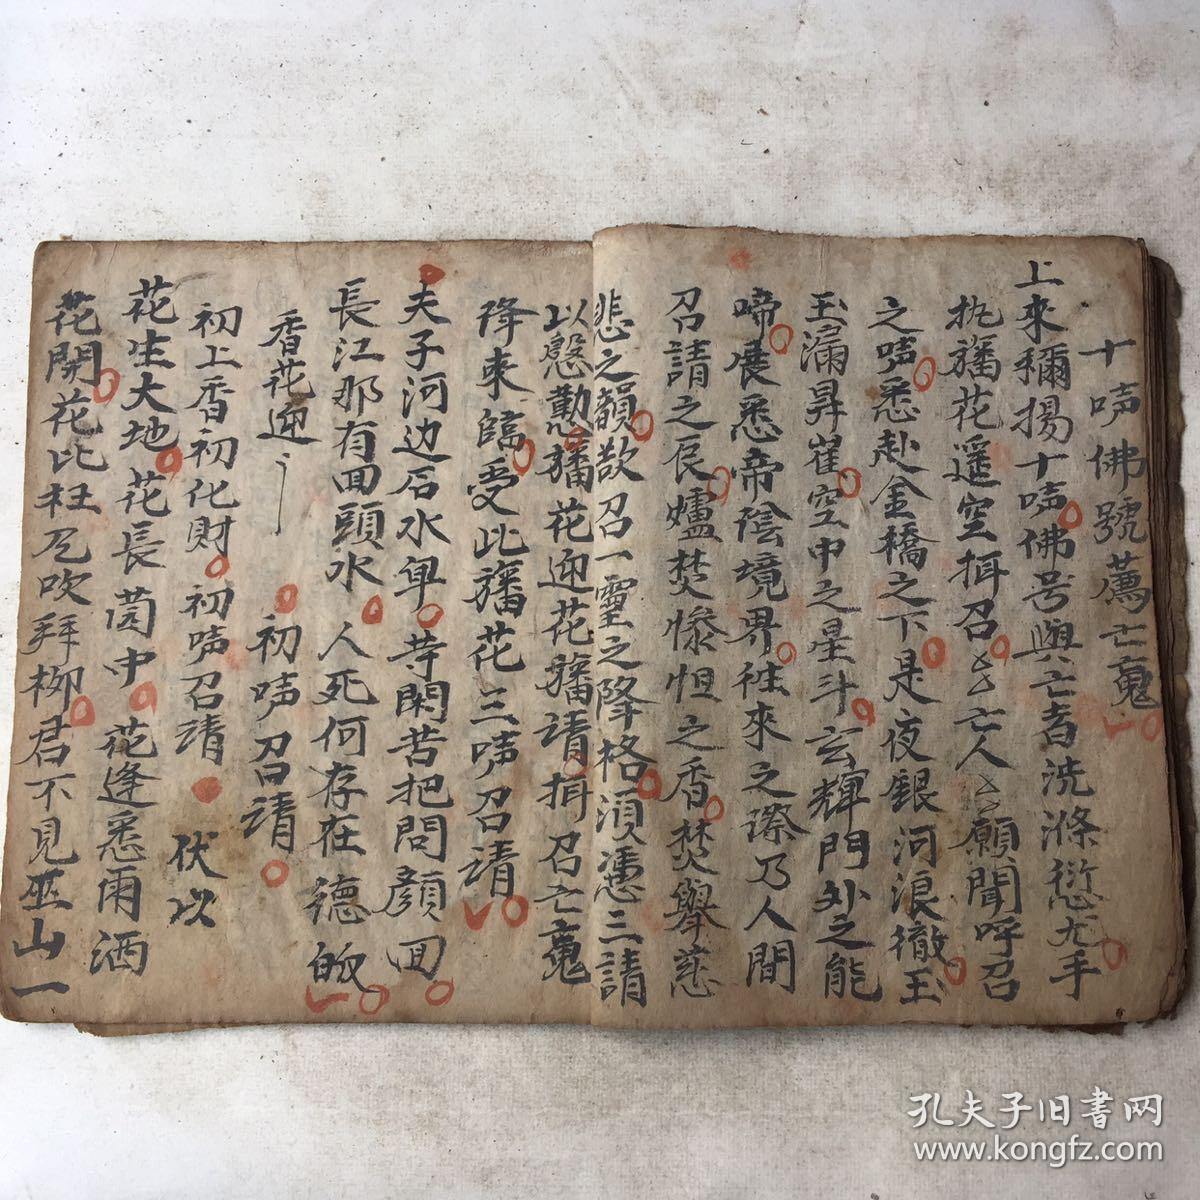 十唥佛號薦亡魂
上來稱揚十唥佛号與亡者洗滌愆尤手
执旛花遥空揖召亡人願聞呼召
之唥悉赴金橋之下是夜銀河浪徹玉
玉漏昇崔空中之星斗玄輝門外之能
啼晨悉帝陰境界往來之際乃人間
召請之辰爐焚惨怛之香焚舉慈
悲之韻欲召一靈之降格須憑三請
以慇懃旛花迎花旛請揖召亡魂
降來臨受此旛花三唥召請
夫子河边石水卑苦問顏回
長江那有囬頭水人死何存在德
香花迎
初唥召請
初上香初化財初唥召請伏以
花生大地花長茵中花逢悉雨洒
花開花比枉吹拜柳君不見巫山一
孔夫子旧书网
www.kongfz.com